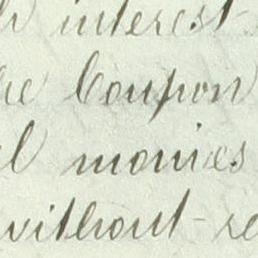 interest
Coupon
monies
without